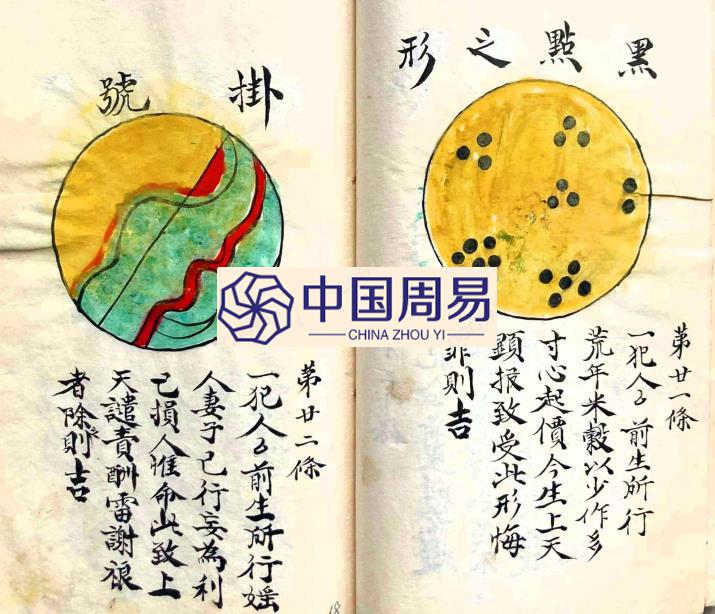 黑點之形
第廿一條
一犯人々前生所行
荒年米穀以少作多
寸心起價今生上天
顕报致受此形悔
罪則吉
掛號
第廿二條
一犯人々前生所行婬
人妻子已行妄為利
己損人惟命此致上
天譴責酬雷謝禳
者除則吉
18
中国周易
CHINA ZHOU YI